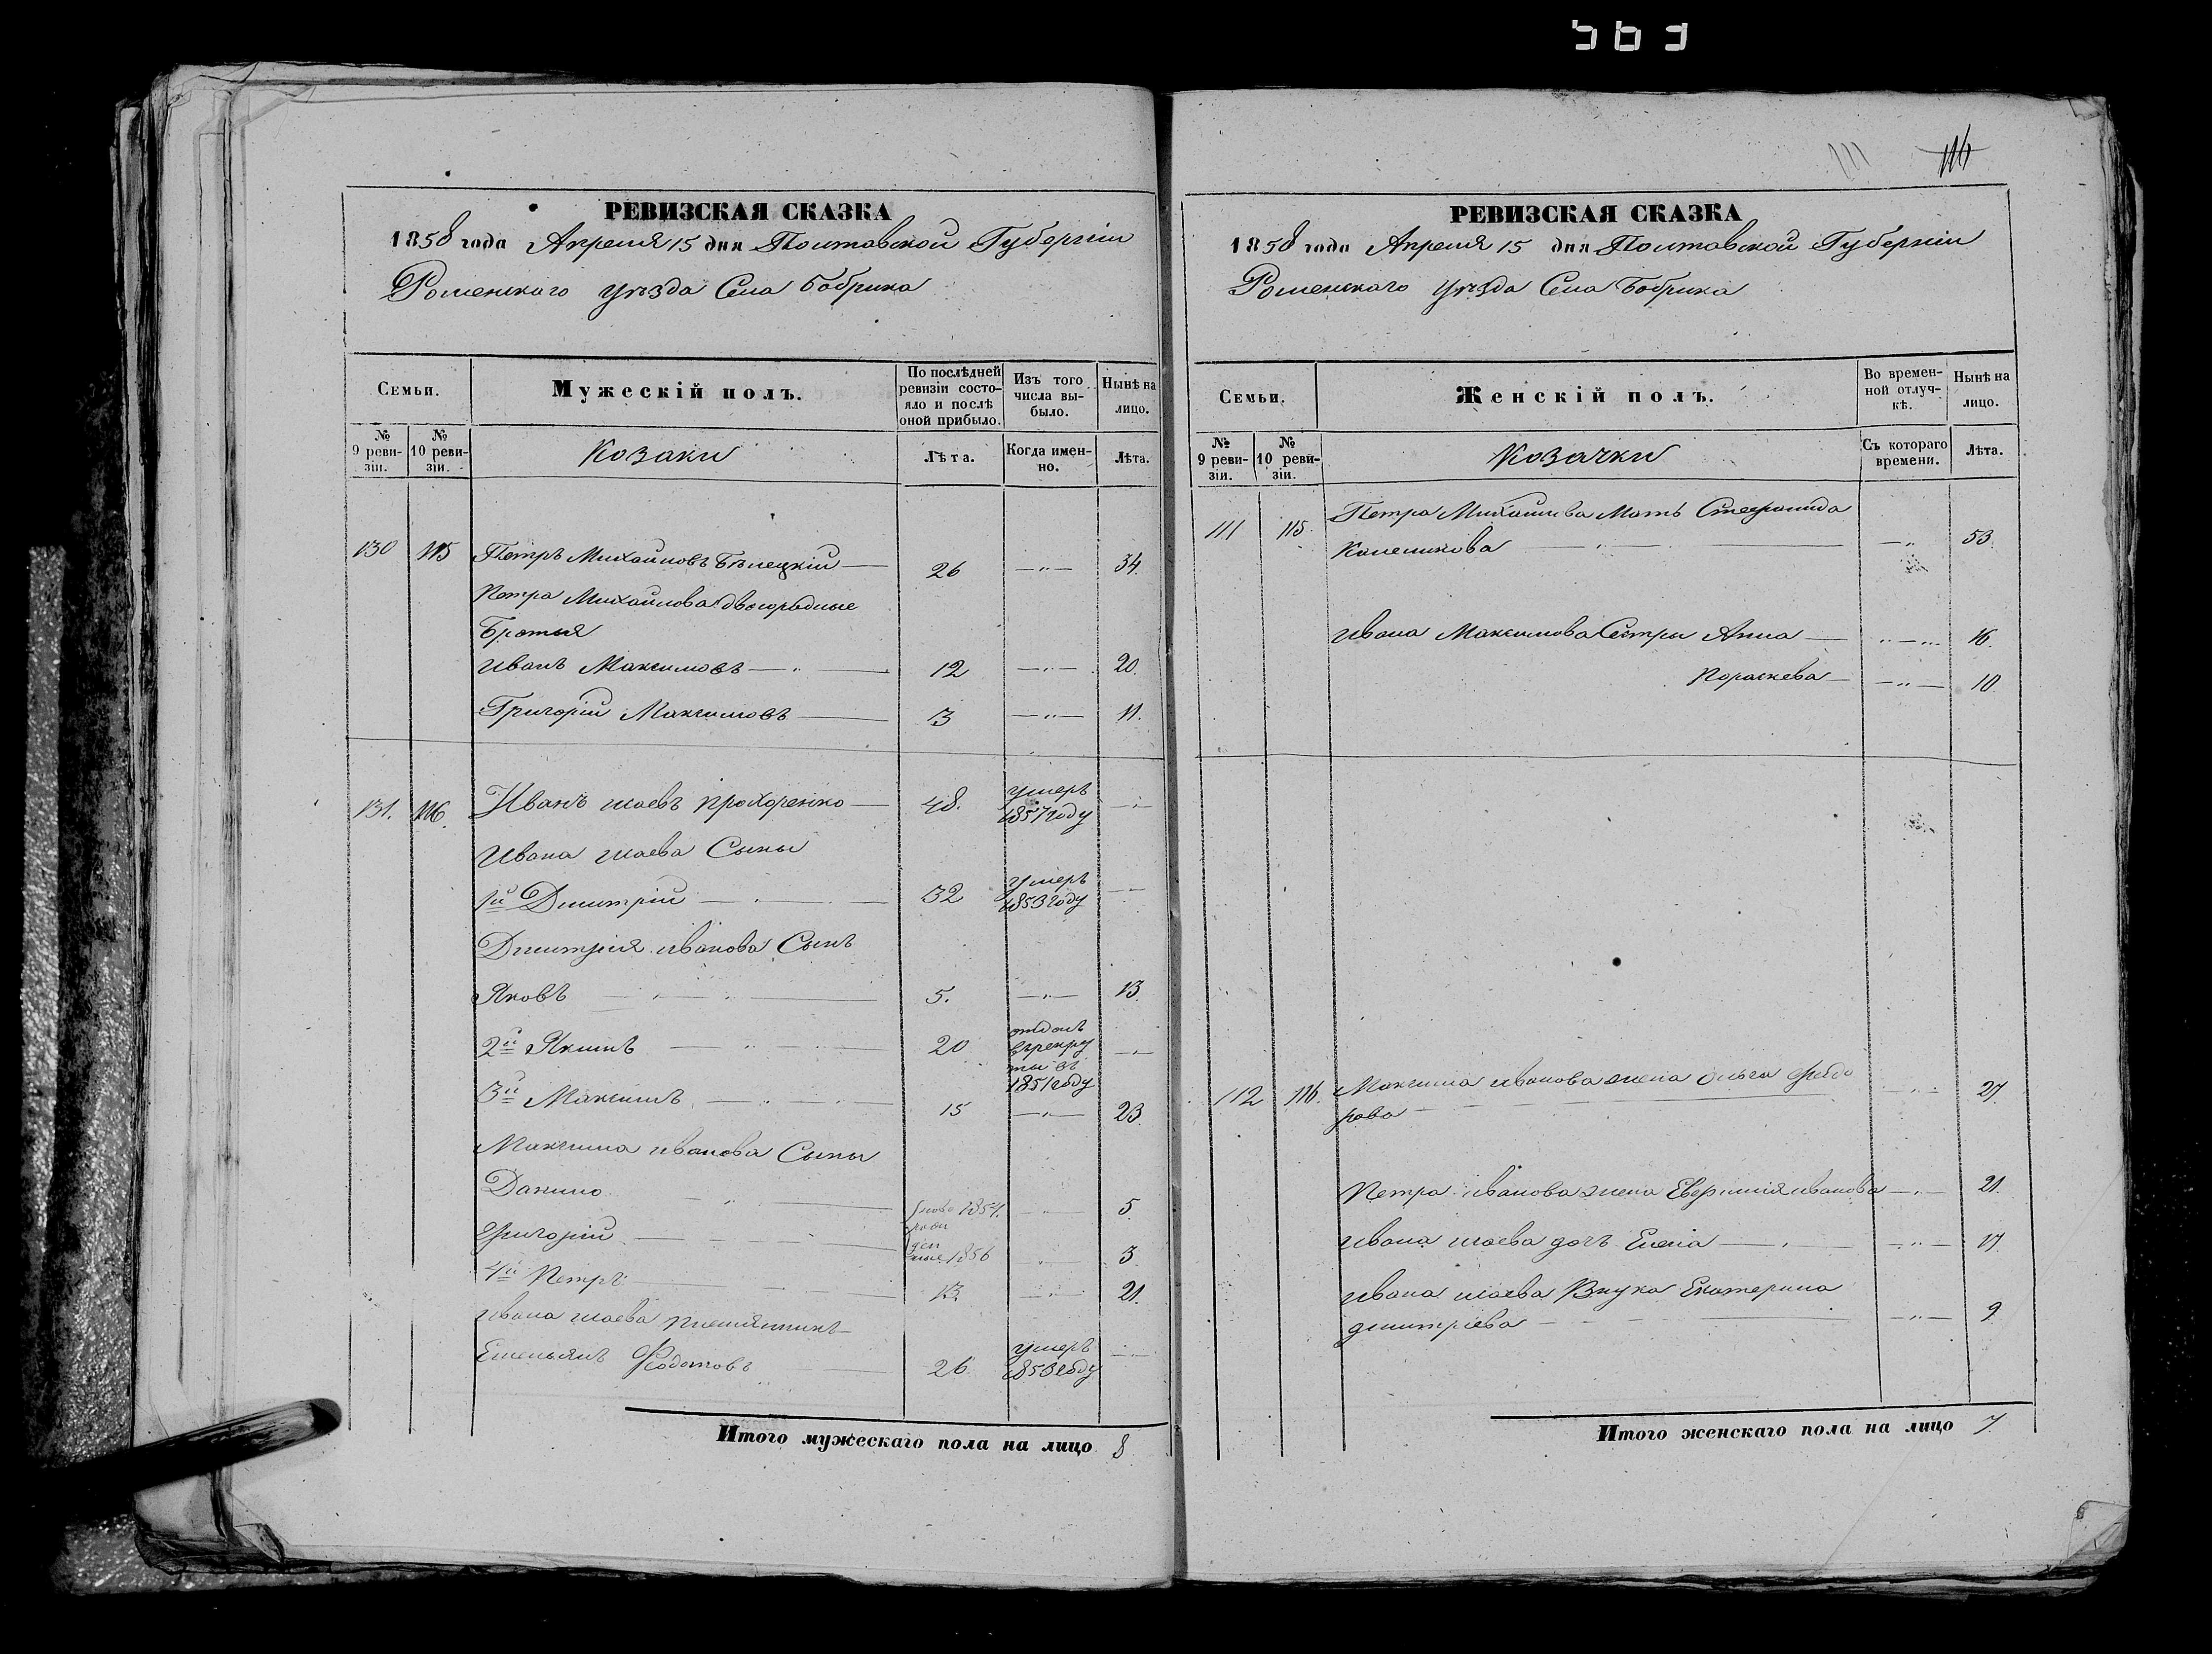 111 116
РЕВИЗСКАЯ СКАЗКА
1858 года Апреля 15 дня Полтавской Губерніи
Роменского уѣзда Села Бобрика
Семьи.
Мужескій полъ.
По послѣдней ревизіи состояло и послѣ оной прибыло.
Изъ того числа выбыло.
Нынѣ на лицо.
№ 9 ревизіи.
№ 10 ревизіи.
Козаки
Лѣта.
Когда именно.
Лѣта.
130 115 Петръ Михайловъ Бѣлецкій 26 34.
Петра Михайлова двоюродные
Братья
Иванъ Максимовъ 12 20.
Григорій Максимовъ 3 11.
131. 116. Иванъ Исаевъ Прохоренко 48. умеръ 1857 году
Ивана Исаева Сыны
1й Дмитрій 32 умеръ 1853 году
Дмитрія Иванова Сынъ
Яковъ 5. 13.
2й Якимъ 20 отданъ въ рекруты въ 1851 году
3й Максимъ 15 23.
Максима Иванова Сыны
Данило 1854. 5.
Григорій 1856 3
4й Петръ 13. 21.
Ивана Исаева племянникъ
Емельянъ Федотовъ 26. умеръ 1853 году
Итого мужескаго пола на лицо 8
РЕВИЗСКАЯ СКАЗКА
1858 года Апреля 15 дня Полтавской Губерніи
Роменскаго уѣзда Села Бобрика
Семьи.
Женскій полъ.
Во временной отлучкѣ.
Нынѣ на лицо.
№ 9 ревизіи.
№ 10 ревизіи.
Козачки
Съ котораго времени.
Лѣта.
111 115. Петра Михайлова Мать Стефанида
53.
Ивана Максимова Сестры Анна 16.
Пораскева 10
112 116. Максима Иванова жена Ольга Федо
рова 27.
Петра Иванова жена Евфимія Иванова 21.
Ивана Исаева дочь Еленa 17.
Ивана Исаева Внука Екатерина
Дмитріева 9
Итого женскаго пола на лицо 7.